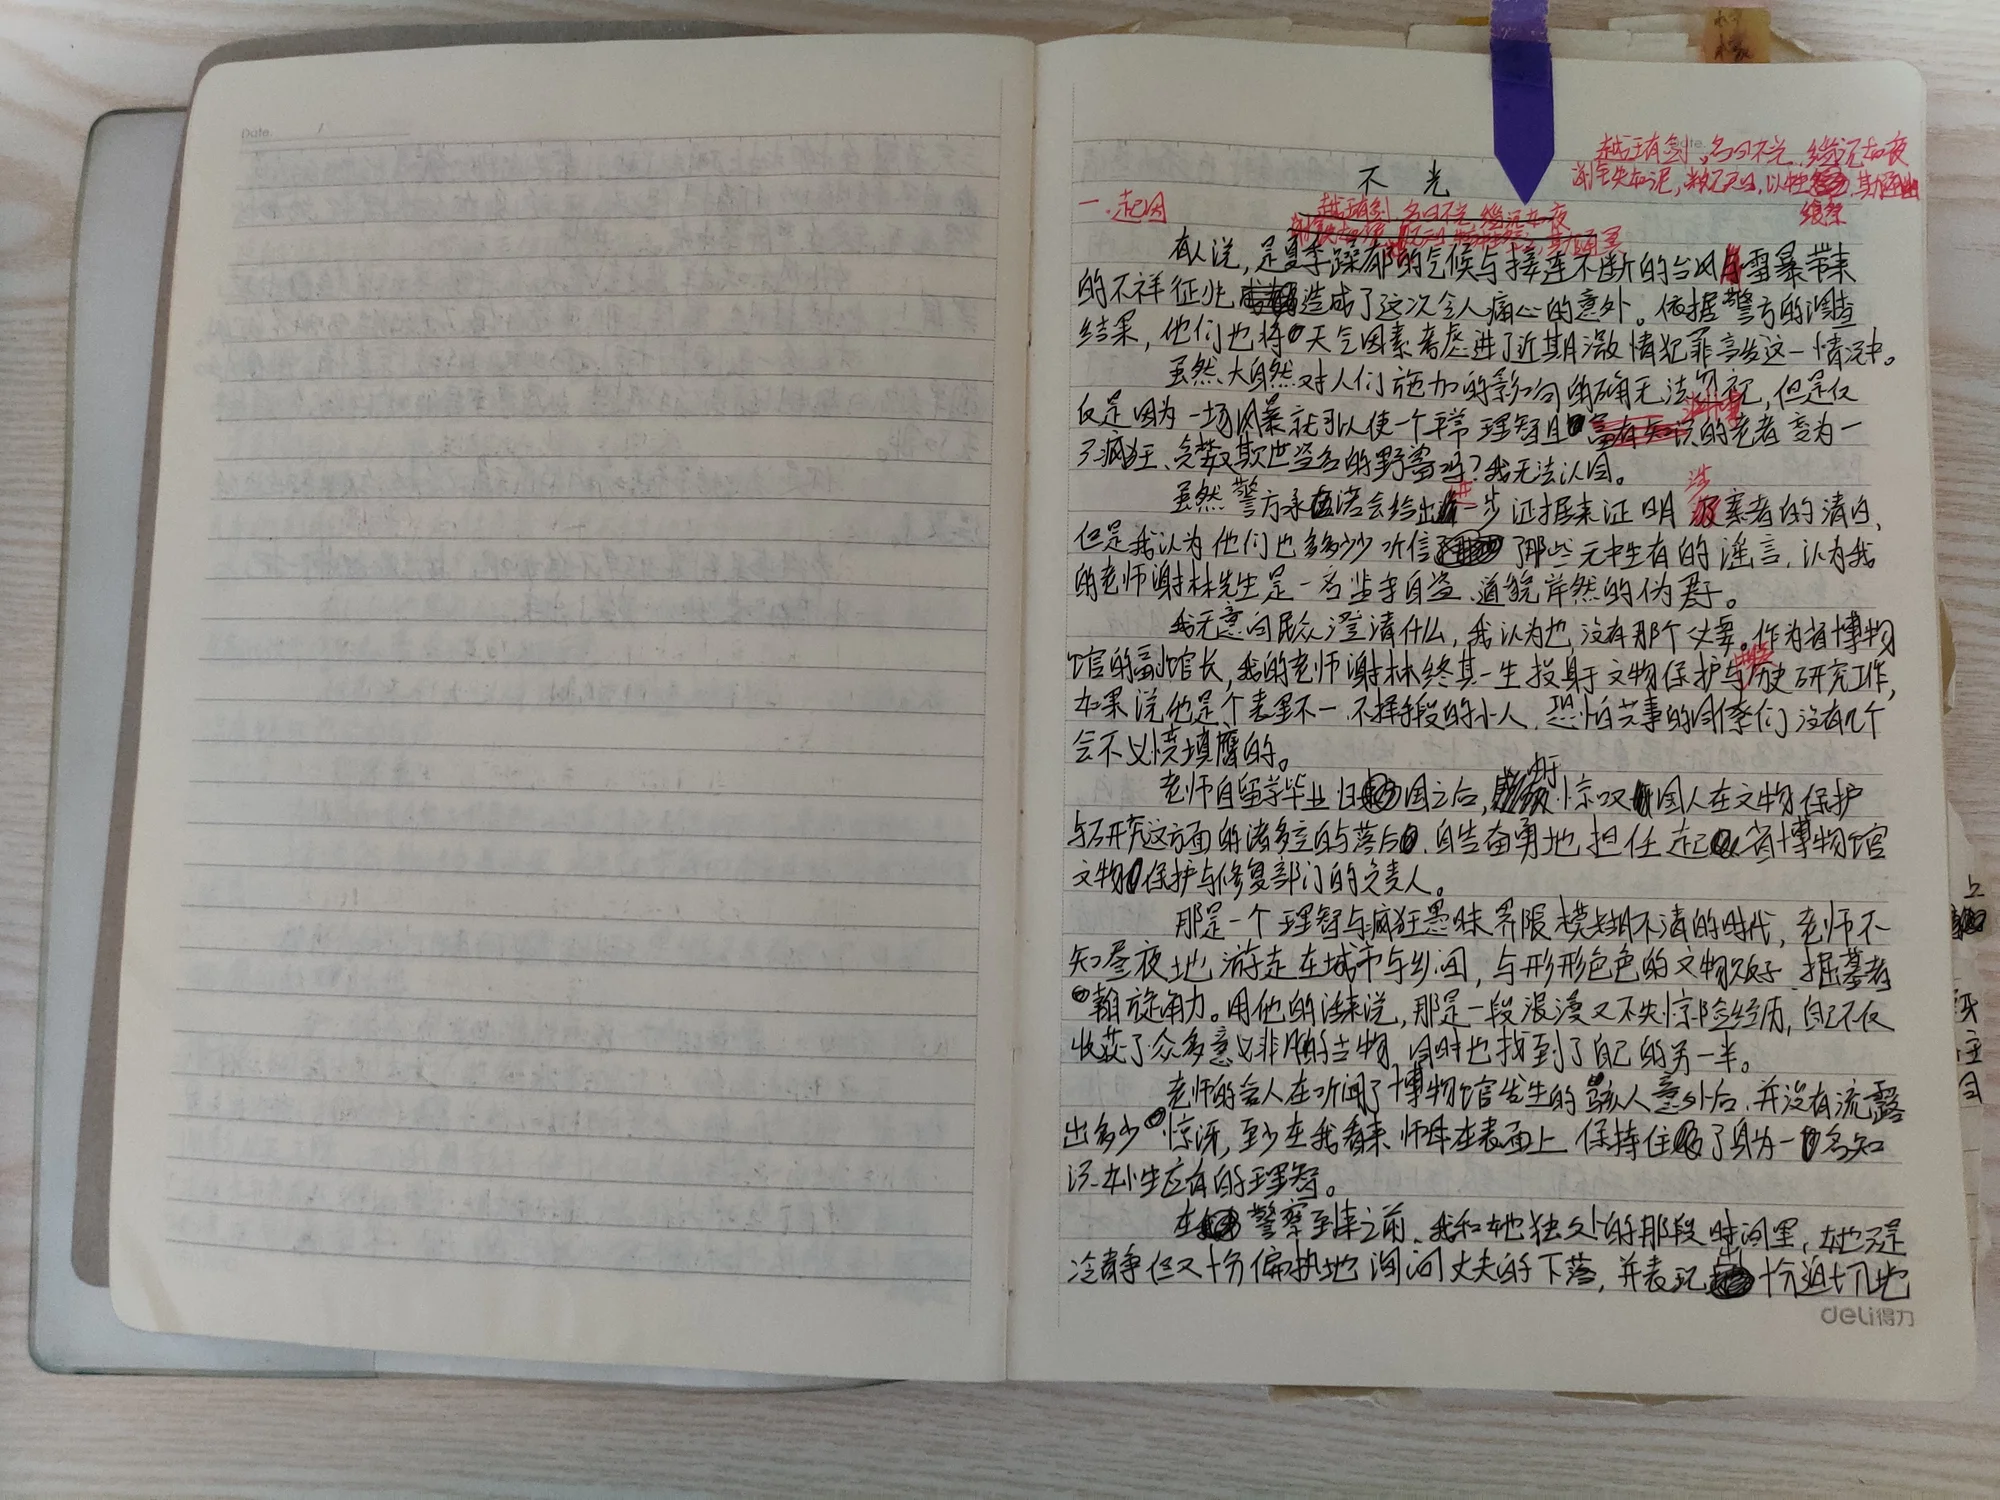 Date.
越王有剑,名曰不光
不光
一.起因
有人说,是夏季躁郁的气候与接连不断的台风雷暴带来
的不祥征兆造成了这次令人痛心的意外。依据警方的调查
结果,他们也将天气因素考虑进了近期激情犯罪高发这一情况中。
虽然大自然对人们施加的影响的确无法忽视,但是仅
仅是因为一场风暴就可以使一个平常理智且的老者变为一
个疯狂、欺世盗名的野兽吗?我无法认同。
虽然警方承诺会给出进一步证据来证明涉案者的清白,
但是我认为他们也多多少少听信了那些无中生有的谣言,认为我
的老师谢林先生是一名监守自盗、道貌岸然的伪君子。
我无意向民众澄清什么,我认为也没有那个必要。作为省博物
馆的副馆长,我的老师谢林终其一生投身于文物保护与历史研究工作,
如果说他是个表里不一、不择手段的小人,恐怕共事的同僚们没有几个
会不义愤填膺的。
老师自留学毕业归国之后,由于惊叹国人在文物保护
与研究这方面的诸多空白与落后,自告奋勇地担任起省博物馆
文物保护与修复部门的负责人。
那是一个理智与疯狂愚昧界限模糊不清的时代,老师不
知昼夜地游走在城市与乡间,与形形色色的文物贩子、掘墓者
斡旋角力。用他的话来说,那是一段浪漫又不失惊险经历,自己不仅
收获了众多意义非凡的古物,同时也找到了自己的另一半。
老师的爱人在听闻了博物馆发生的骇人意外后,并没有流露
出多少惊讶,至少在我看来师母在表面上保持住了身为一名知
识女性应有的理智。
在警察到来之前,我和她独处的那段时间里,她只是
冷静但又十分偏执地询问丈夫的下落,并表现出十分迫切地
deli得力
上